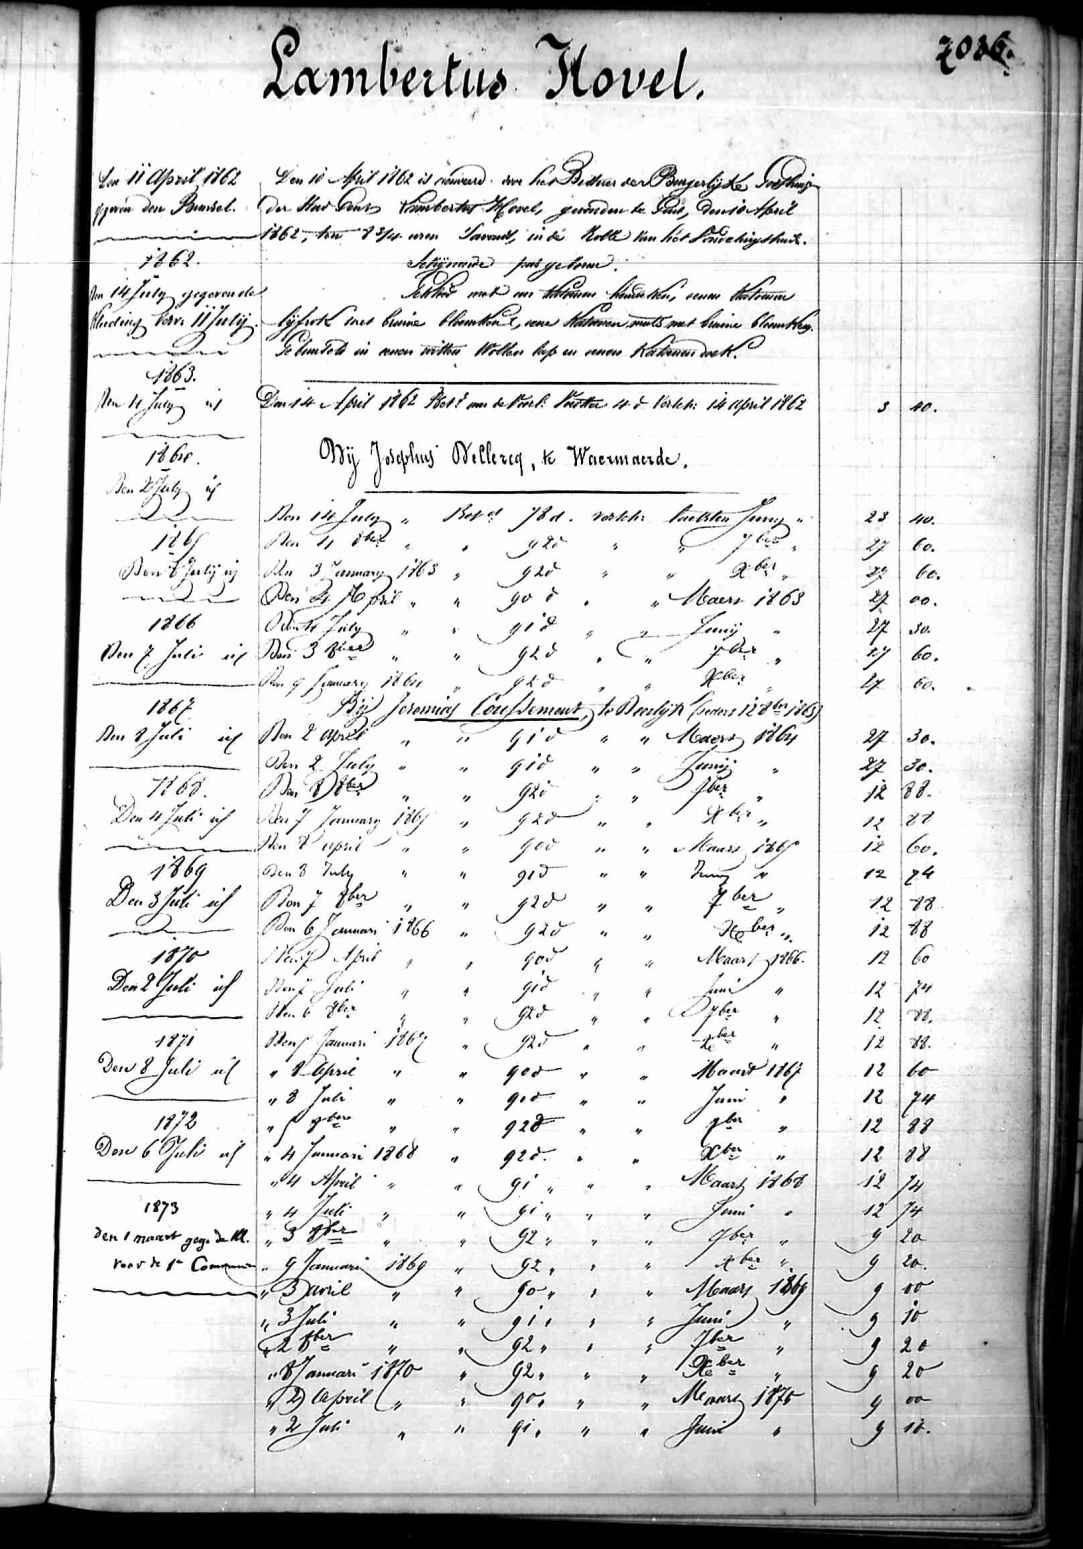 2086.
Lambertus Hovel.
Den 11 April 1862
gegeven den Bundsel.
1862.
den 14 July gegeven de
kleeding verv: 11 July.
1863.
Den 4 July id
1864.
Den 2 July id
1865
Den 8 July id
1866
Den 7 Juli id
1867
Den 8 Juli id
1868.
Den 4 Juli id
1869
Den 3 Juli id
1870
Den 2 Juli id
1871
Den 8 Juli id
1872
Den 6 Juli id
1873
den 1 maart geg. de Kl.
voor de 1e Communie
Den 10 April 1862 is aanveerd door het Bestuer der Burgerlijke Godshuizen
der Stad Gent Lambertus Hovel, gevonden te Gent, den 10 April
1862, ten 8 3/4 uren 's avonds, in de Rolle van het Vondelingshuis.
Schijnende pas geboren.
Gekleed met een katoenen hemdeken, eenen katoenen
lijfrok met bruine bloemkens, eene katoenen muts met bruine bloemkens.
Gebundeld in eenen witten wollen lap en eenen katoenen doek.
Den 14 April 1862 Bet.d aan de Voorl. Voester 4 d. verlek: 14 april 1862 3 40.
Bij Josephus Dellercq, te Waermaerde.
Den 14 July " Bet.d 78 d. verlek: laetsten Juny " 23 40.
Den 4 8ber " " 92 d " " 7ber " 27 60.
Den 3 January 1863 " 92 d " " Xber " 27 60.
Den 4 April " " 90 d " " Maert 1863 27 00.
Den 4 July " " 91 d " " Junij " 27 30.
Den 3 8ber " " 92 d " " 7ber " 27 60.
Den 9 January 1864 " 92 d " " Xber " 27 60.
Bij Jeremias Coussement, te Boulijk (sedert 12 8ber 1863)
Den 2 april " " 91 d " " Maert 1864 27 30.
Den 2 July " " 91 d " " Junij " 27 30.
Den 8 8ber " " 92 d " " 7ber " 12 88.
Den 7 January 1865 " 92 d " " Xber " 12 88
Den 8 april " " 90 d " " Maart 1865 12 60.
Den 8 July " " 91 d " " Juny " 12 74
Den 7 8ber " " 92 d " " 7ber " 12 88
Den 6 Januari 1866 " 92 d " " Xber " 12 88
Den 7 April " " 90 d " " Maart 1866. 12 60
Den 7 Juli " " 91 d " " Juni " 12 74
Den 6 8ber " " 92 d " " 7ber " 12 88.
Den 5 Januari 1867 " 92 d " " Xber " 12 88.
" 8 April " " 90 d " " Maart 1867 12 60
" 8 Juli " " 91 d " " Juni " 12 74
" 5 8ber " " 92 d " " 7ber " 12 88
" 4 Januari 1868 " 92 d. " " Xber " 12 88
" 4 April " " 91 " " " Maart 1868 12 74
" 4 Juli " " 91 " " " Juni " 12 74
" 3 8ber " " 92 " " " 7ber " 9 20
" 9 Januari 1869 " 92 " " " Xber " 9 20.
" 3 avril " " 90 " " " Maart 1869 9 00
" 3 Juli " " 91 " " " Juni " 9 10
" 2 8ber " " 92 " " " 7ber " 9 20
" 8 Januari 1870 " 92 " " " Xber " 9 20
" 2 April " " 90 " " " Maart 1870 9 00
" 2 Juli " " 91 " " " Juni " 9 10.